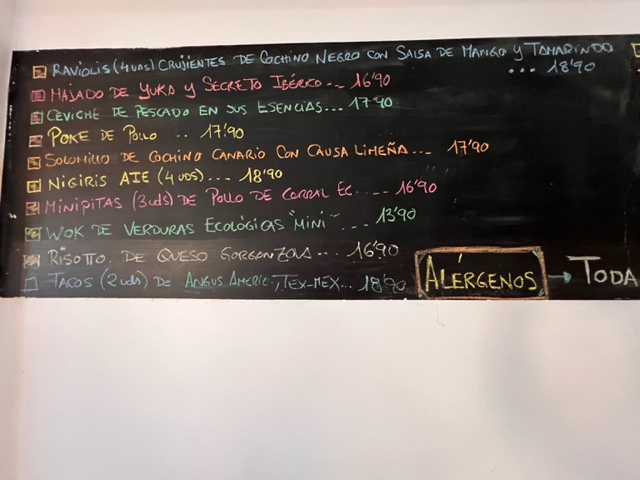 RAVIOLIS (4 UDS) CRUJIENTES DE COCHINO NEGRO CON SALSA DE MANGO Y TAMARINDO
... 18'90
MAJADO DE YUKA Y SECRETO IBÉRICO... 16'90
CEVICHE DE PESCADO EN SUS ESENCIAS... 17'90
POKE DE POLLO .. 17'90
SOLOMILLO DE COCHINO CANARIO CON CAUSA LIMEÑA... 17'90
NIGIRIS AIE (4 UDS)... 18'90
MINIPITAS (3 uds) DE POLLO DE CORRAL EC.... 16'90
WOK DE VERDURAS ECOLÓGICAS "MINI"... 13'90
RISOTTO DE QUESO GORGONZOLA... 16'90
TACOS (2 uds) DE ANGUS AMERIC., TEX-MEX... 18'90
ALÉRGENOS → TODA